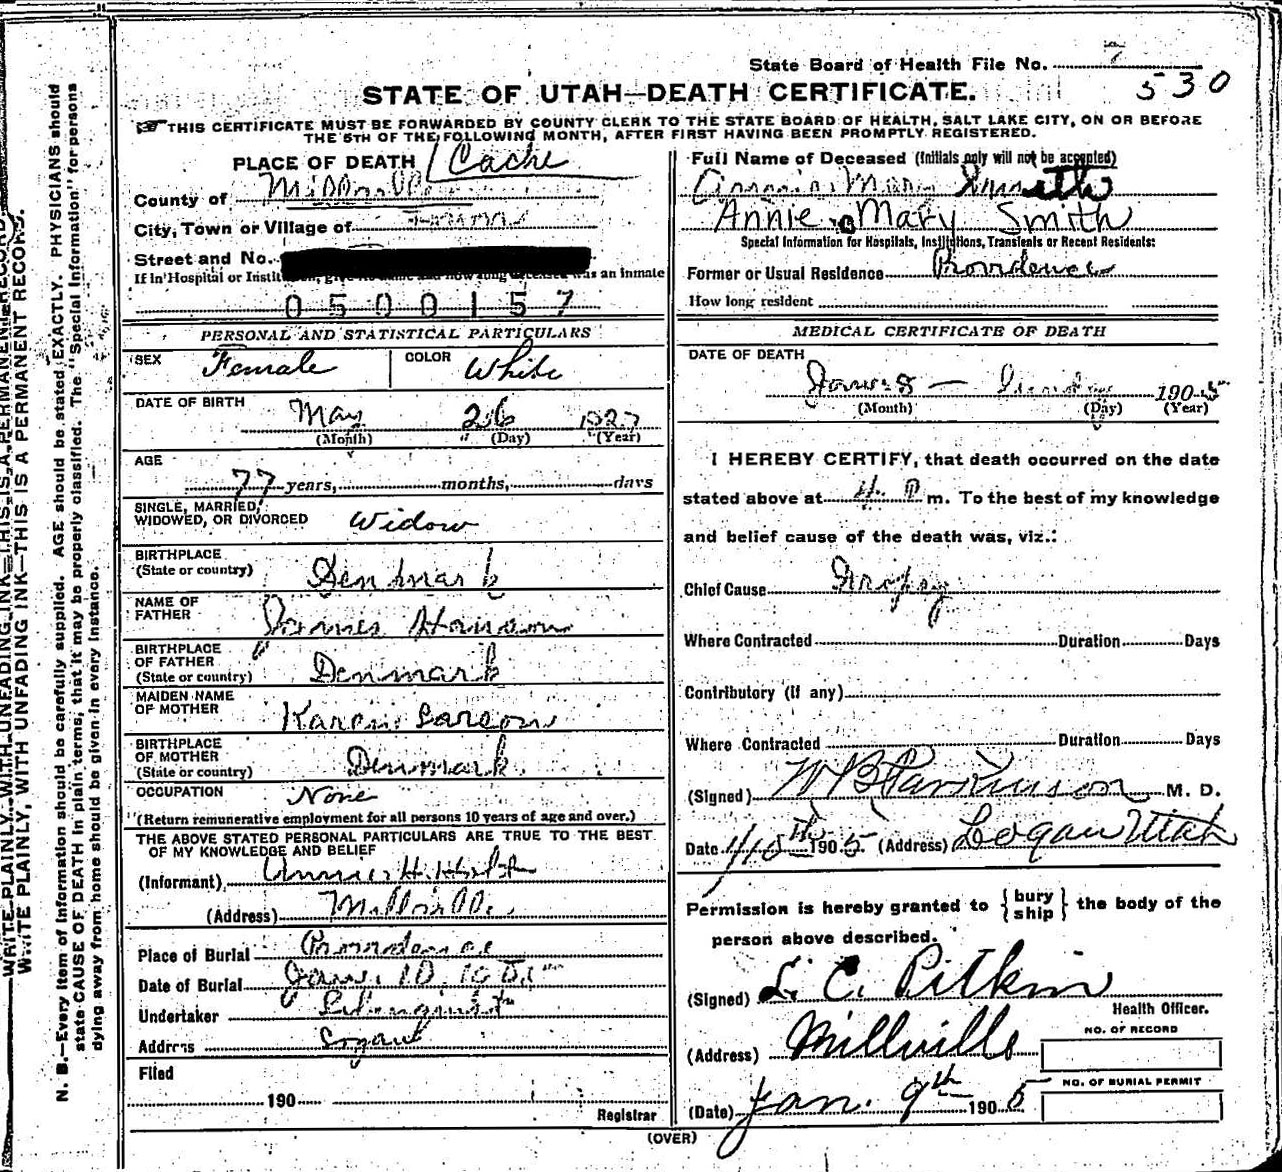 State Board of Health File No. 7
530
STATE OF UTAH—DEATH CERTIFICATE.
THIS CERTIFICATE MUST BE FORWARDED BY COUNTY CLERK TO THE STATE BOARD OF HEALTH, SALT LAKE CITY, ON OR BEFORE
THE 5TH OF THE FOLLOWING MONTH, AFTER FIRST HAVING BEEN PROMPTLY REGISTERED.
PLACE OF DEATH Cache
County of Millville
City, Town or Village of
Street and No.
If in Hospital or was an inmate
0500157
PERSONAL AND STATISTICAL PARTICULARS
SEX Female COLOR White
DATE OF BIRTH May 26 1827
(Month) (Day) (Year)
AGE
77 years, months, days
SINGLE, MARRIED,
WIDOWED, OR DIVORCED Widow
BIRTHPLACE
(State or country) Denmark
NAME OF
FATHER James Hanson
BIRTHPLACE
OF FATHER
(State or country) Denmark
MAIDEN NAME
OF MOTHER Karen Larson
BIRTHPLACE
OF MOTHER
(State or country) Denmark
OCCUPATION None
(Return remunerative employment for all persons 10 years of age and over.)
THE ABOVE STATED PERSONAL PARTICULARS ARE TRUE TO THE BEST
OF MY KNOWLEDGE AND BELIEF
(Informant) Annie H.
(Address) Millville
Place of Burial Providence
Date of Burial Jan. 10, 1905
Undertaker
Address Logan
Filed
190
Registrar
Full Name of Deceased (Initials only will not be accepted)
Annie Mary Smith
Annie Mary Smith
Special Information for Hospitals, Institutions, Transients or Recent Residents:
Former or Usual Residence Providence
How long resident
MEDICAL CERTIFICATE OF DEATH
DATE OF DEATH
Jan. 8 — Sunday 1905
(Month) (Day) (Year)
I HEREBY CERTIFY, that death occurred on the date
stated above at 4 P m. To the best of my knowledge
and belief cause of the death was, viz.:
Chief Cause Dropsy
Where Contracted Duration Days
Contributory (if any)
Where Contracted Duration Days
(Signed) W B Parkinson M. D.
Date 1/10th 1905 (Address) Logan Utah
Permission is hereby granted to { bury ship } the body of the
person above described.
(Signed) L. C. Pitkin
Health Officer.
(Address) Millville
NO. OF RECORD
NO. OF BURIAL PERMIT
(Date) Jan. 9th 1905
(OVER)
WRITE PLAINLY, WITH UNFADING INK—THIS IS A PERMANENT RECORD.
WRITE PLAINLY, WITH UNFADING INK—THIS IS A PERMANENT RECORD.
N. B.—Every item of information should be carefully supplied. AGE should be stated EXACTLY. PHYSICIANS should
state CAUSE OF DEATH in plain terms, that it may be properly classified. The "Special Information" for persons
dying away from home should be given in every instance.